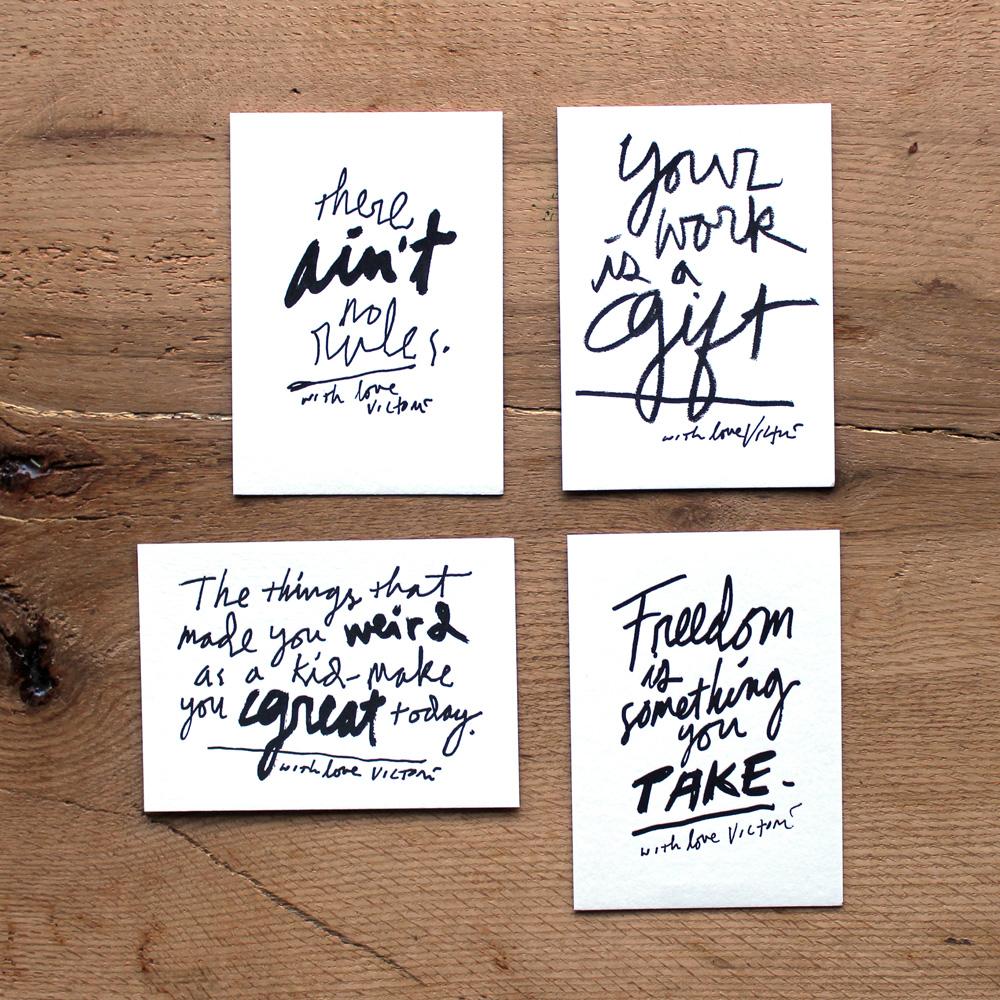 there
ain't
no
rules.
with love
Victore
your
work
is a
gift
with love Victore
The things that
made you weird
as a kid-make
you great today.
with love Victore
Freedom
is
something
you
TAKE.
with love Victore